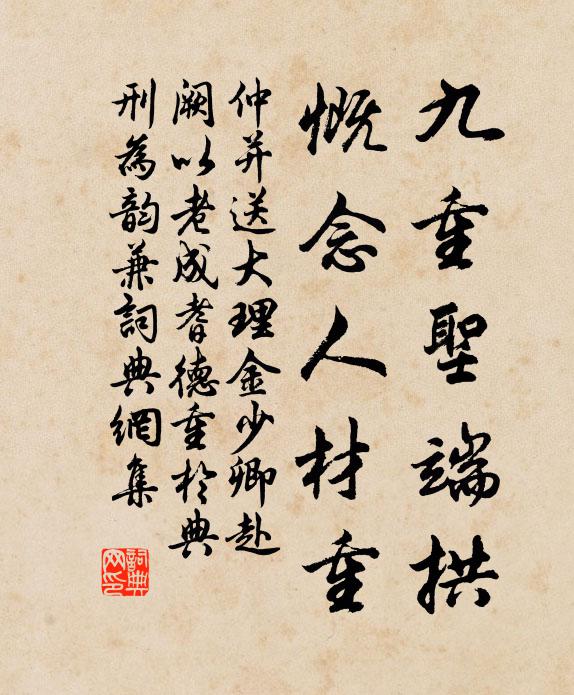 九重聖端拱
慨念人材重
仲并送大理金少卿赴
闕以老成耆德重於典
刑為韵兼詞典網集
詞典网印